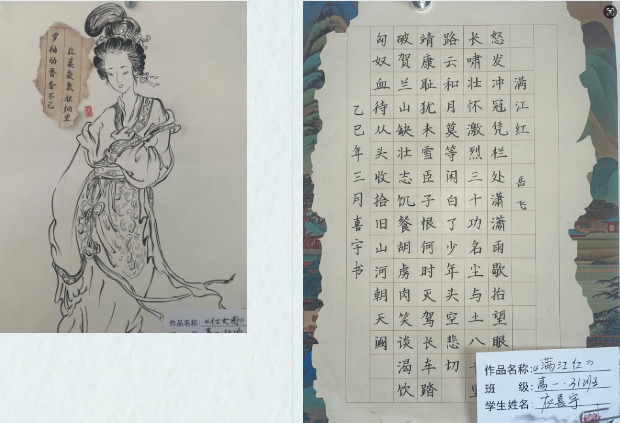 罗袖动香香不已
红蕖袅袅秋烟里
作品名称:《仕女图》
满江红 岳飞
怒发冲冠凭栏处潇潇雨歇抬望眼
长啸壮怀激烈三十功名尘与土八千里
路云和月莫等闲白了少年头空悲切
靖康耻犹未雪臣子恨何时灭驾长车踏
破贺兰山缺壮志饥餐胡虏肉笑谈渴饮
匈奴血待从头收拾旧山河朝天阙
乙巳年三月喜宇书
作品名称:《满江红》
班 级:高一·31班
学生姓名:嘉宇